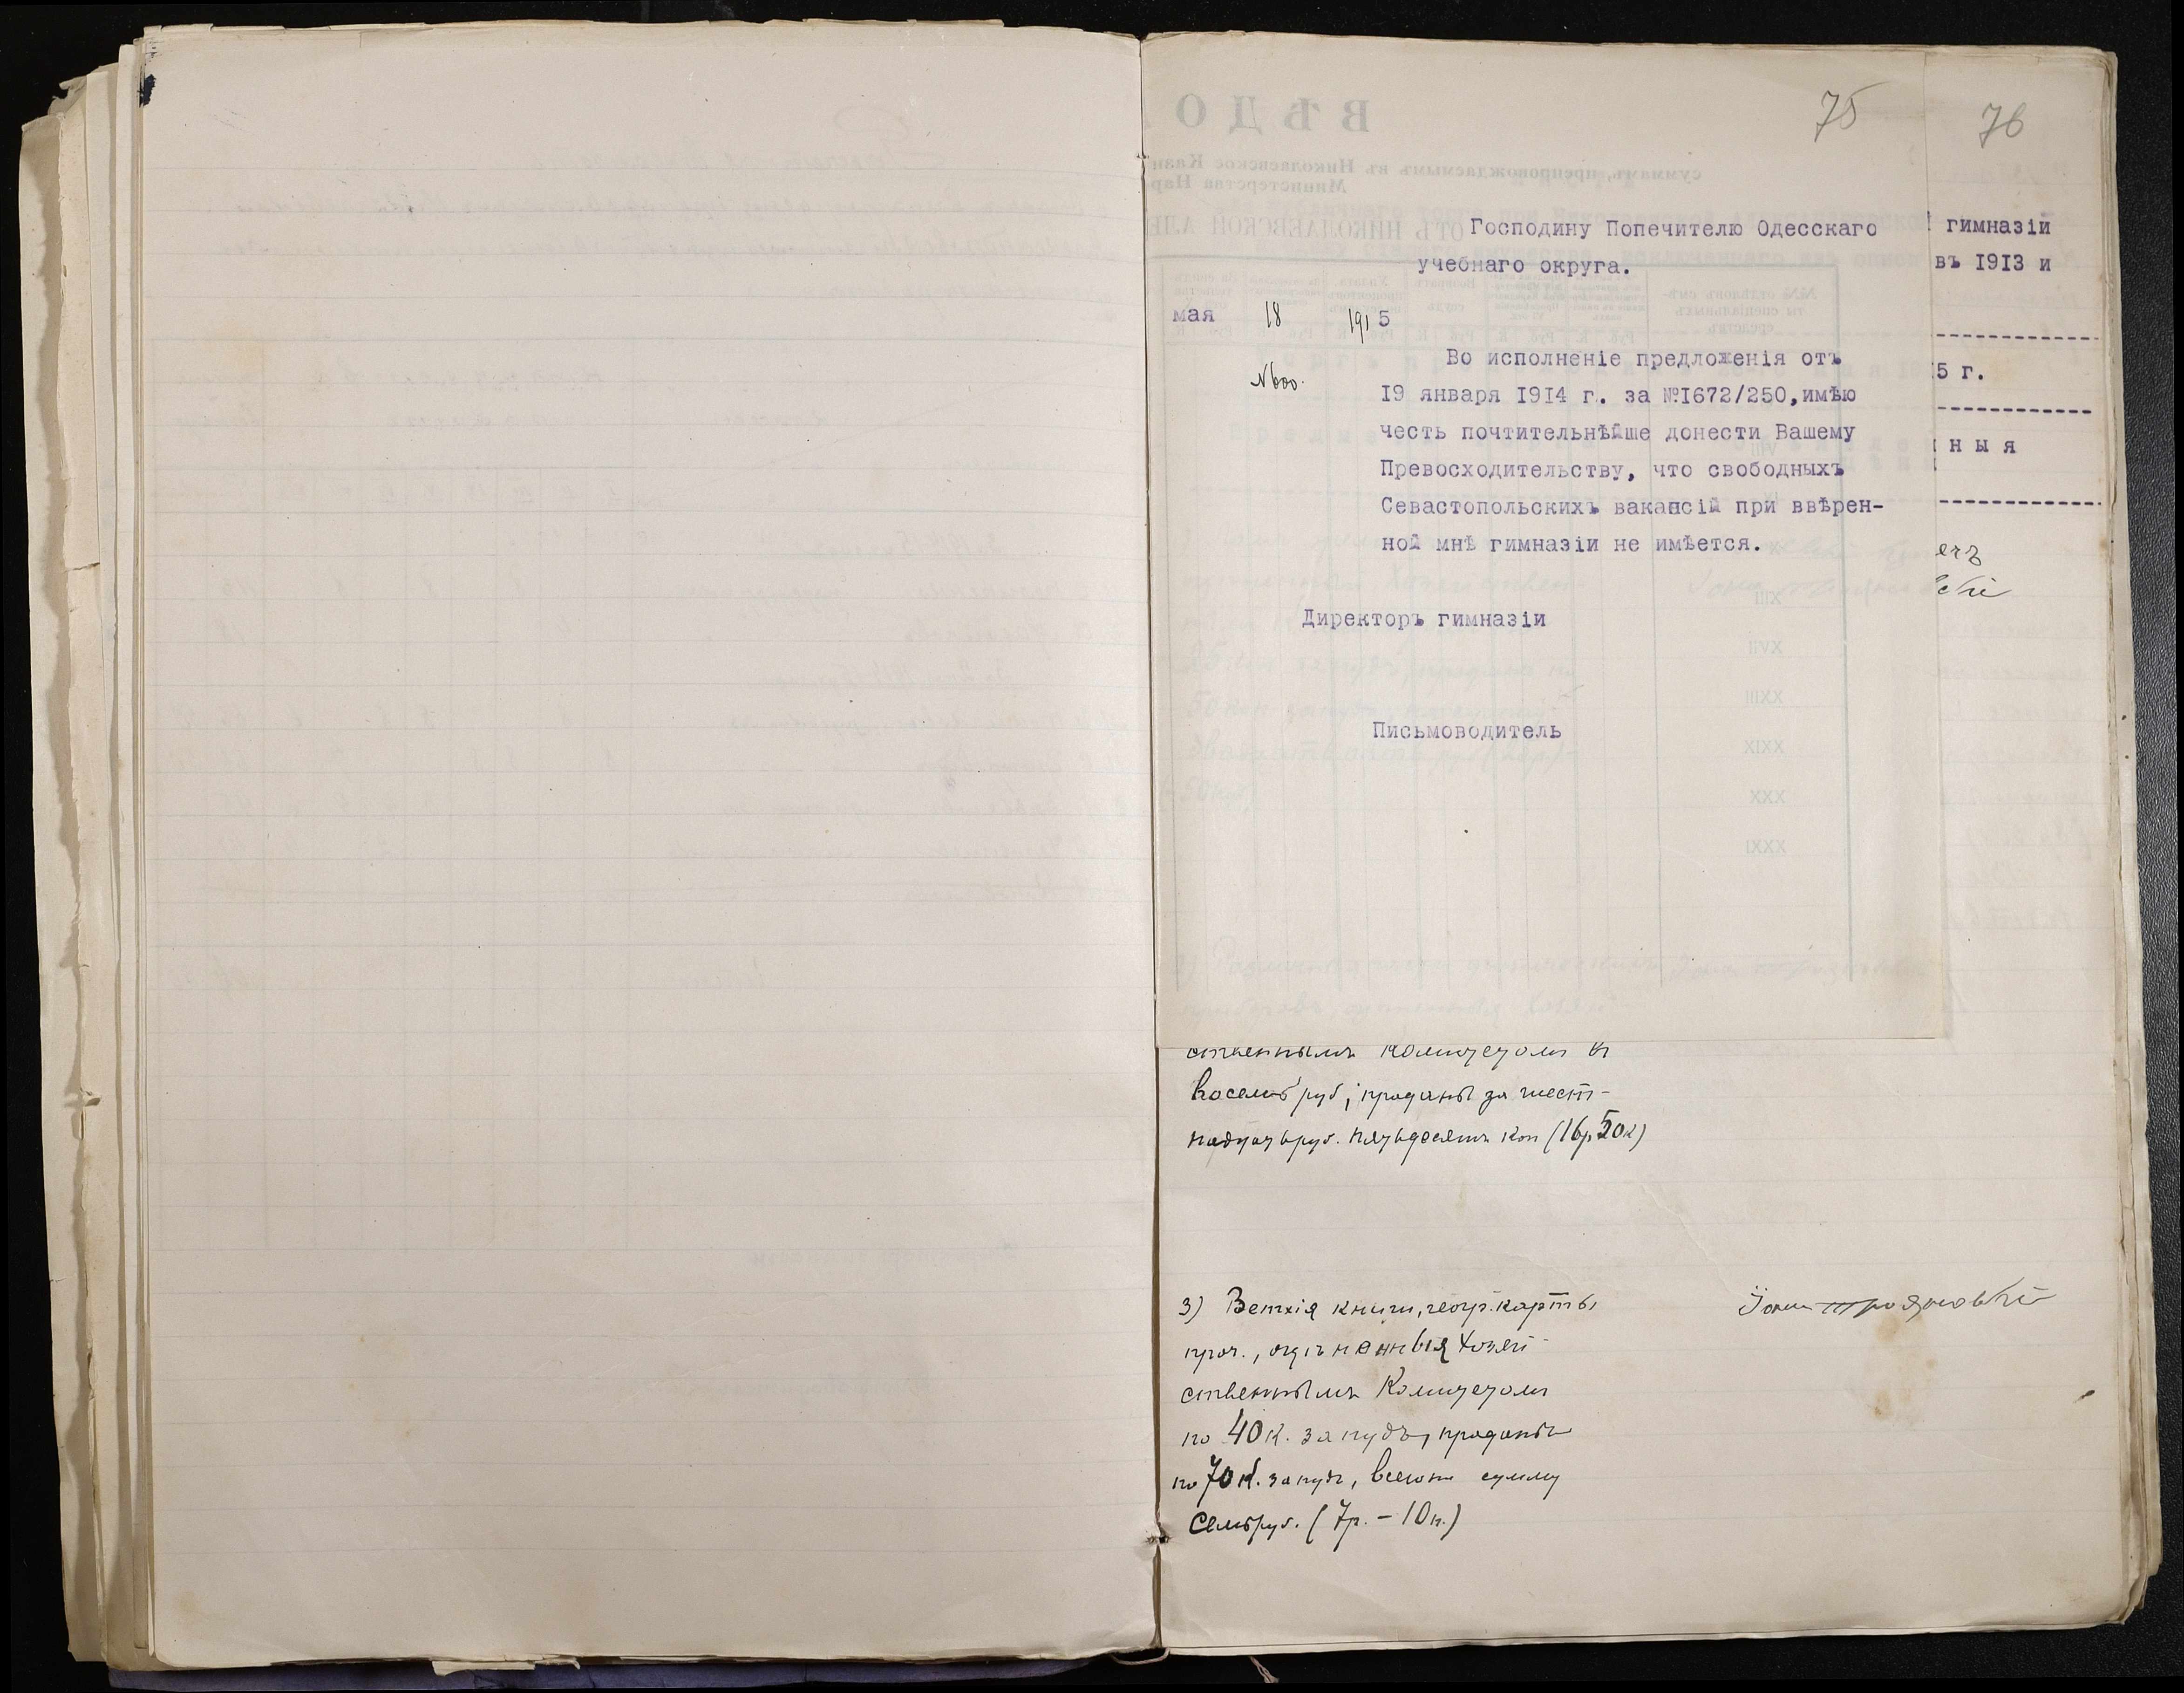 75
76
Господину Попечителю Одесскаго
учебнаго округа.
мая 18 1915
№600.
Во исполненіе предложенія отъ
19 января 1914 г. за №1672/250, имѣю
честь почтительнѣйше донести Вашему
Превосходительству, что свободныхъ
Севастопольскихъ вакансій при ввѣрен-
ной мнѣ гимназіи не имѣется.
Директоръ гимназіи
Письмоводитель
гимназіи
въ 1913 и
5 г.
н ы я
ственнымъ Комитетомъ в
восемь руб; проданы за шест-
надцать руб. пятьдесятъ коп (16р 50к)
3) Ветхія книги, геогр. карты
проч., оцѣненныя Хозяй-
ственнымъ Комитетомъ
по 40 к. за пудъ, проданы
по 70 к. за пудъ, всего на сумму
семь руб. (7р. - 10к.)